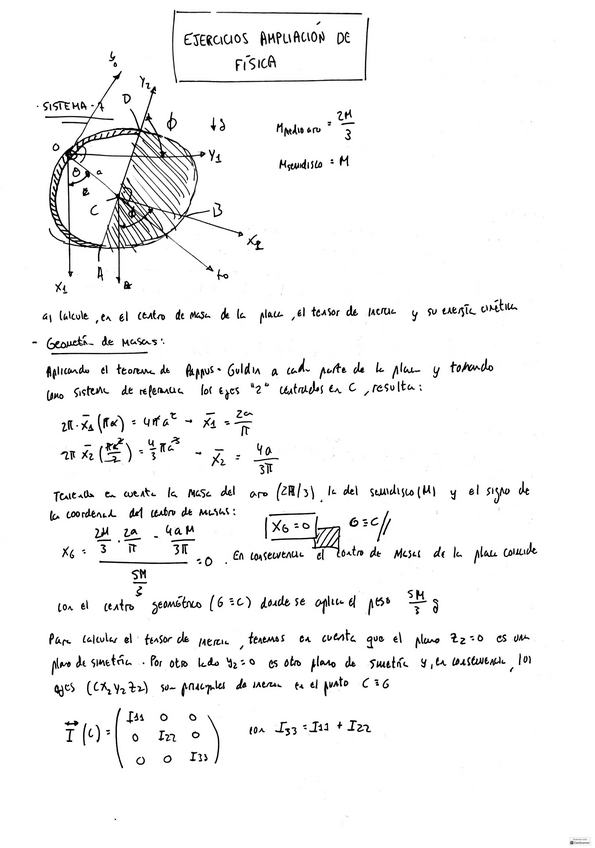 EJERCICIOS AMPLIACIÓN DE
FÍSICA
SISTEMA - 1
y₀
Y₂
D
ϕ
↓g
O
Y₁
θ
a
C
ϕ
B
X₂
A
X₁
M medio aro = 2M/3
M semidisco = M
a) Calcule, en el centro de masa de la placa, el tensor de inercia y su energía cinética
- Geometría de masas:
Aplicando el teorema de Pappus-Guldin a cada parte de la placa y tomando
como sistema de referencia los ejes "2" centrados en C, resulta:
2π · X̄₁ (πa) = 4πa² → X̄₁ = 2a/π
2π X̄₂ (πa²/2) = 4/3 πa³ → X̄₂ = 4a/3π
Teniendo en cuenta la masa del aro (2M/3), la del semidisco (M) y el signo de
la coordenada del centro de masas:
X_G = (2M/3 · 2a/π - 4aM/3π) / (5M/3) = 0. X_G = 0 G ≡ C //
En consecuencia el centro de masas de la placa coincide
con el centro geométrico (G ≡ C) donde se aplica el peso 5M/3 g
Para calcular el tensor de inercia, tenemos en cuenta que el plano Z₂=0 es un
plano de simetría. Por otro lado Y₂=0 es otro plano de simetría y, en consecuencia, los
ejes (CX₂Y₂Z₂) son principales de inercia en el punto C ≡ G
I (C) = ( I₁₁ 0 0
0 I₂₂ 0
0 0 I₃₃ ) con I₃₃ = I₁₁ + I₂₂
CamScanner